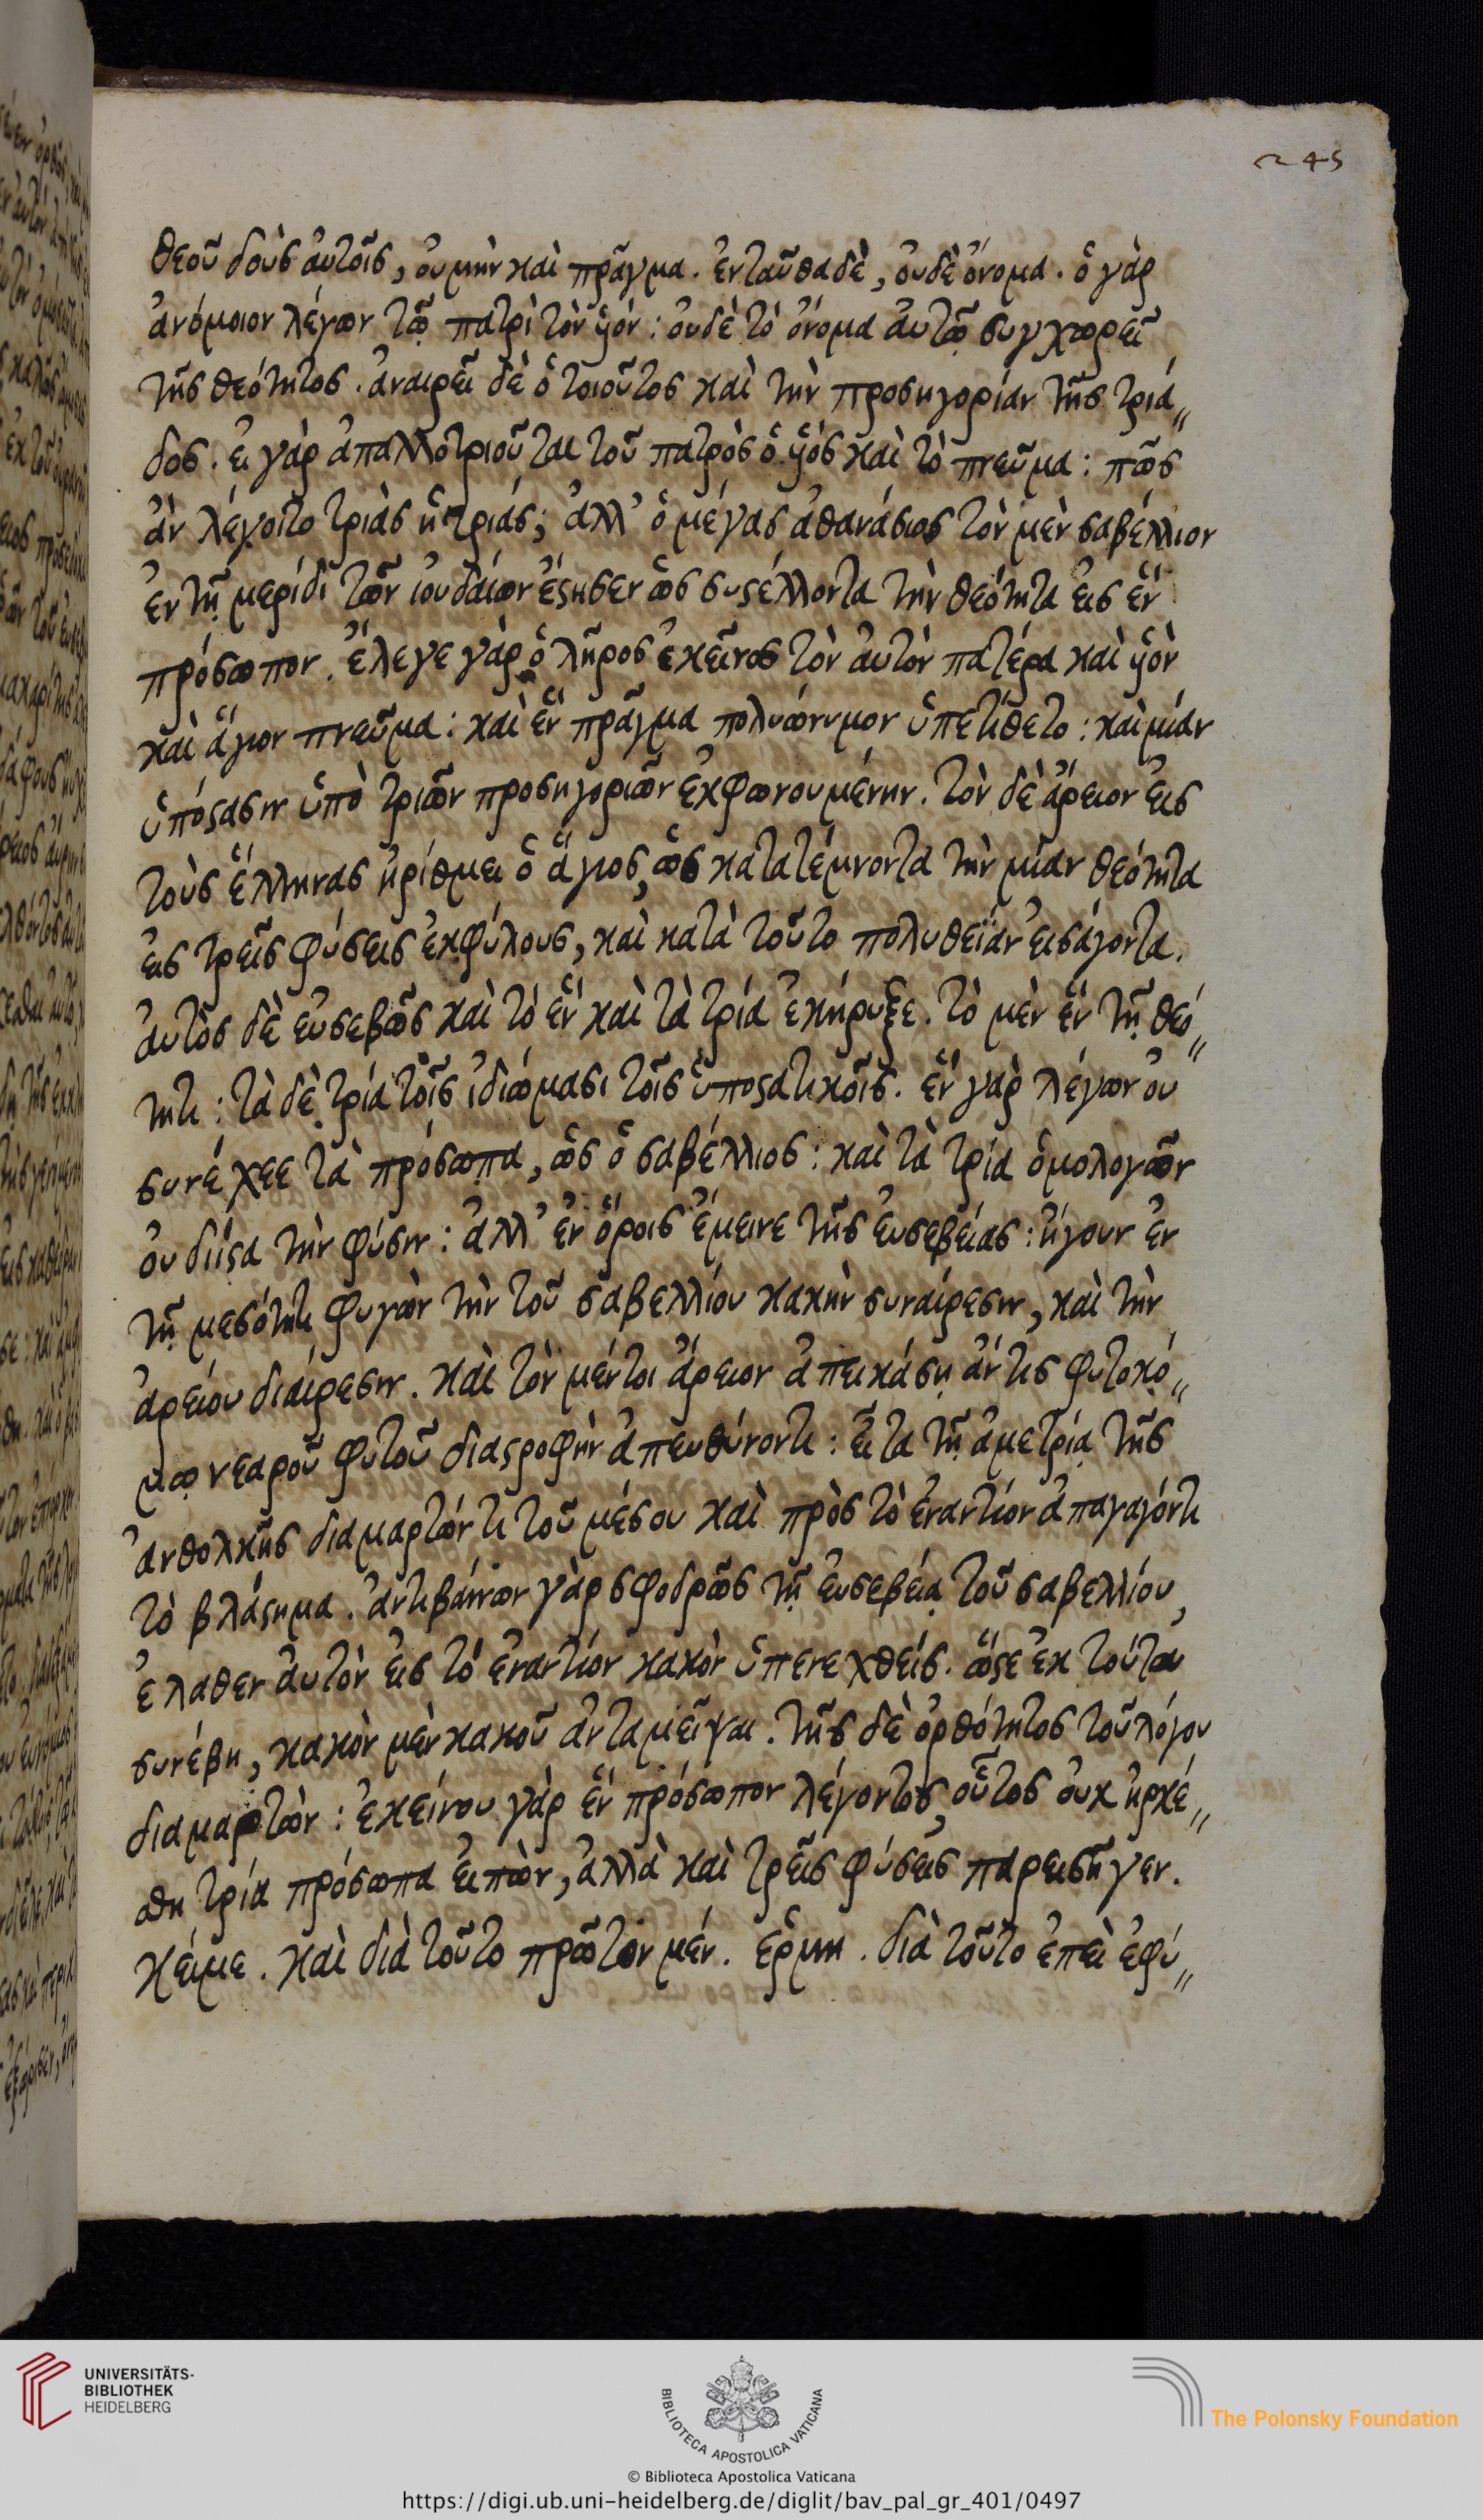 245
θεοῦ δοὺς αὐτοῖς, οὐ μὴν καὶ πρᾶγμα. ἐνταῦθα δὲ, οὐδὲ ὄνομα. ὁ γὰρ
ἀνόμοιον λέγων τῶ πατρὶ τὸν ὑιόν: οὐδὲ τὸ ὄνομα αὐτῶ συγχωρεῖ
τῆς θεότητος. ἀναιρεῖ δὲ ὁ τοιοῦτος καὶ τὴν προσηγορίαν τῆς τριά〃
δος. εἰ γὰρ ἀπαλλοτριοῦται τοῦ πατρὸς ὁ ὑιὸς καὶ τὸ πνεῦμα: πῶς
ἀν λέγοιτο τριὰς ἡ τριάς; ἀλλ' ὁ μέγας ἀθανάσιος τὸν μὲν σαβέλλιον
ἐν τῆ μερίδι τῶν ἰουδαίων ἔστησεν ὡς συστέλλοντα τὴν θεότητα εἰς ἓν
πρόσωπον. ἔλεγε γὰρ ὁ λῆρος ἐκεῖνος τὸν αὐτὸν πατέρα καὶ ὑιὸν
καὶ ἅγιον πνεῦμα: καὶ ἓν πρᾶγμα πολυώνυμον ὑπετίθετο: καὶ μίαν
ὑπόστασιν ὑπὸ τριῶν προσηγοριῶν ἐκφωνουμένην. τὸν δὲ ἄρειον εἰς
τοὺς ἕλληνας ἠρίθμει ὁ ἅγιος, ὡς κατατέμνοντα τὴν μίαν θεότητα
εἰς τρεῖς φύσεις ἐκφύλους, καὶ κατὰ τοῦτο πολυθεΐαν εἰσάγοντα.
αὐτὸς δὲ εὐσεβῶς καὶ τὸ ἓν καὶ τὰ τρία ἐκήρυξε. τὸ μὲν ἓν τῆ θεό〃
τητι: τὰ δὲ τρία τοῖς ἰδιώμασι τοῖς ὑποστατικοῖς. ἓν γὰρ λέγων οὐ
συνέχεε τὰ πρόσωπα, ὡς ὁ σαβέλλιος: καὶ τὰ τρία ὁμολογῶν
οὐ διΐστα τὴν φύσιν: ἀλλ' ἐν ὅροις ἔμεινε τῆς εὐσεβείας: ἤγουν ἐν
τῆ μεσότητι φυγὼν τὴν τοῦ σαβελλίου κακὴν συναίρεσιν, καὶ τὴν
ἀρείου διαίρεσιν. καὶ τὸν μέντοι ἄρειον ἀπεικάση ἄν τις φυτοκό〃
μω νεαροῦ φυτοῦ διαστροφὴν ἀπευθύνοντι: εἶτα τῆ ἀμετρία τῆς
ἀνθολκῆς διαμαρτόντι τοῦ μέσου καὶ πρὸς τὸ ἐναντίον ἀπαγαγόντι
τὸ βλάστημα. ἀντιβαίνων γὰρ σφοδρῶς τῆ εὐσεβεία τοῦ σαβελλίου,
ἔλαθεν αὐτὸν εἰς τὸ ἐναντίον κακὸν ὑπενεχθείς. ὥστε ἐκ τούτου
συνέβη, κακὸν μὲν κακοῦ ἀνταμεῖψαι. τῆς δὲ ὀρθότητος τοῦ λόγου
διαμαρτών: ἐκείνου γὰρ ἓν πρόσωπον λέγοντος, οὗτος οὐκ ἠρκέ〃
σθη τρία πρόσωπα εἰπὼν, ἀλλὰ καὶ τρεῖς φύσεις παρεισῆγεν.
κείμε. καὶ διὰ τοῦτο πρῶτον μέν. ἑρμη. διὰ τοῦτο ἐπεὶ ἐφύ〃
UNIVERSITÄTS-
BIBLIOTHEK
HEIDELBERG
BIBLIOTECA APOSTOLICA VATICANA
The Polonsky Foundation
© Biblioteca Apostolica Vaticana
https://digi.ub.uni-heidelberg.de/diglit/bav_pal_gr_401/0497